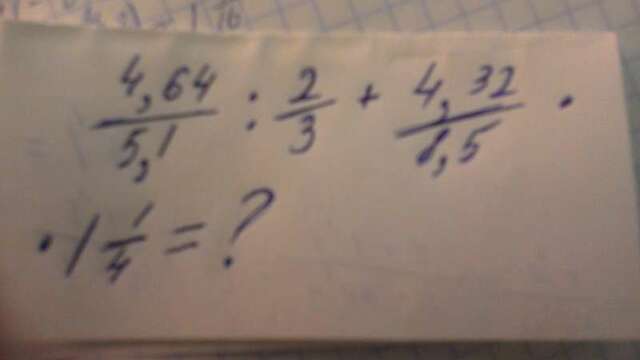 4,64/5,1 : 2/3 + 4,32/8,5 ·
· 1 1/4 = ?